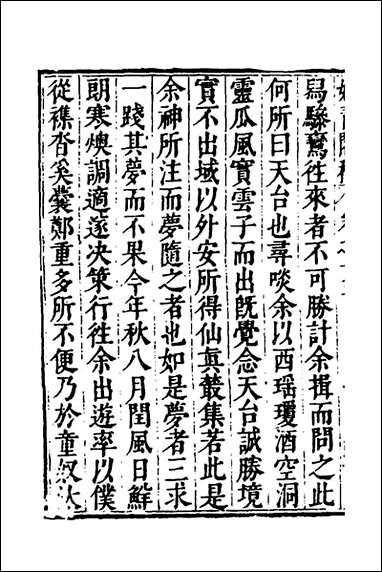 舄驂鸞往來者不可勝計余揖而問之此
何所曰天台也尋啖余以西瑶瓊酒空洞
靈瓜風實雲子而出旣覺念天台誠勝境
實不出域以外安所得仙眞叢集若此是
余神所注而夢隨之者也如是夢者三求
一踐其夢而不果今年秋八月閏風日鮮
朗寒燠調適遂决策行往余出遊率以僕
從襍沓奚囊鄭重多所不便乃於童奴汰